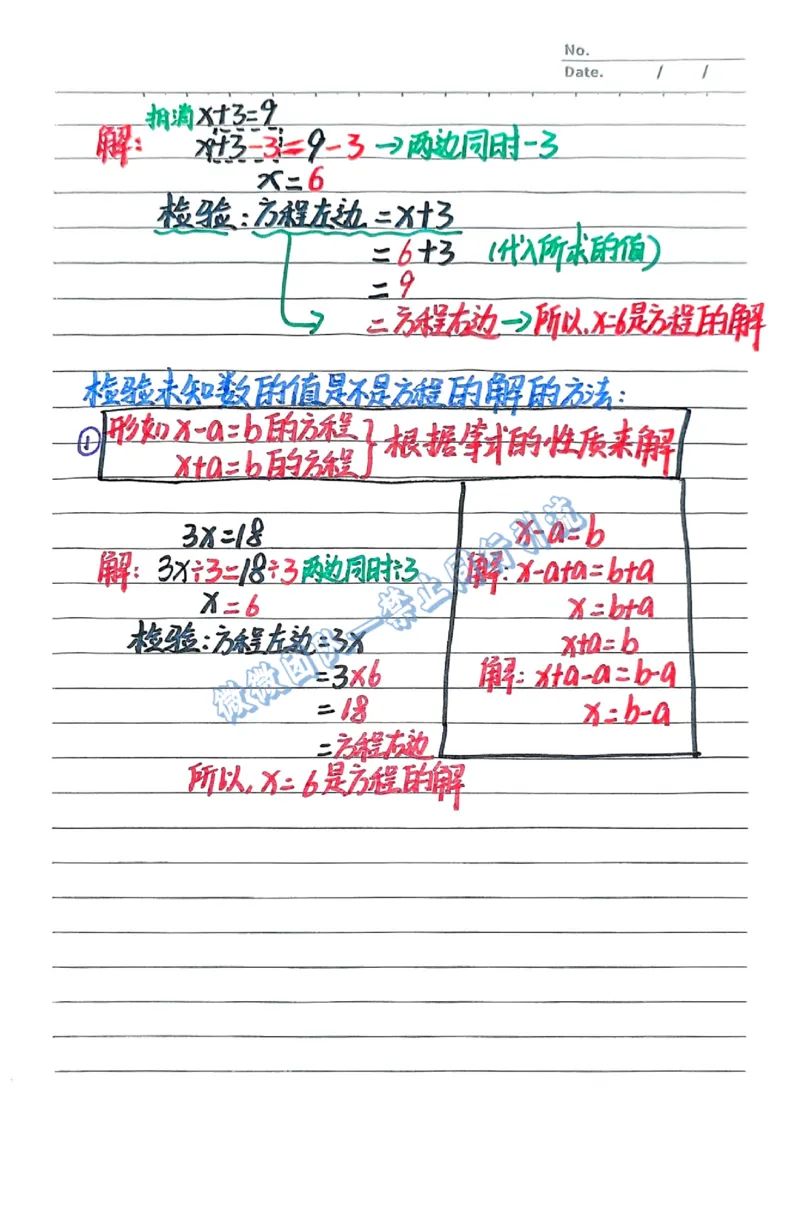 No.
Date. / /
抵消 x+3=9
解: x+3-3=9-3 →两边同时-3
x=6
检验:方程左边=x+3
=6+3 (代入所求的值)
=9
=方程右边→所以,x=6是方程的解
检验未知数的值是不是方程的解的方法:
① 形如x-a=b的方程
x+a=b的方程 } 根据等式的性质来解
3x=18
解: 3x÷3=18÷3 两边同时÷3
x=6
检验:方程左边=3x
=3×6
=18
=方程右边
所以,x=6是方程的解
x-a=b
解:x-a+a=b+a
x=b+a
x+a=b
解:x+a-a=b-a
x=b-a
微微团队—禁止同行训流